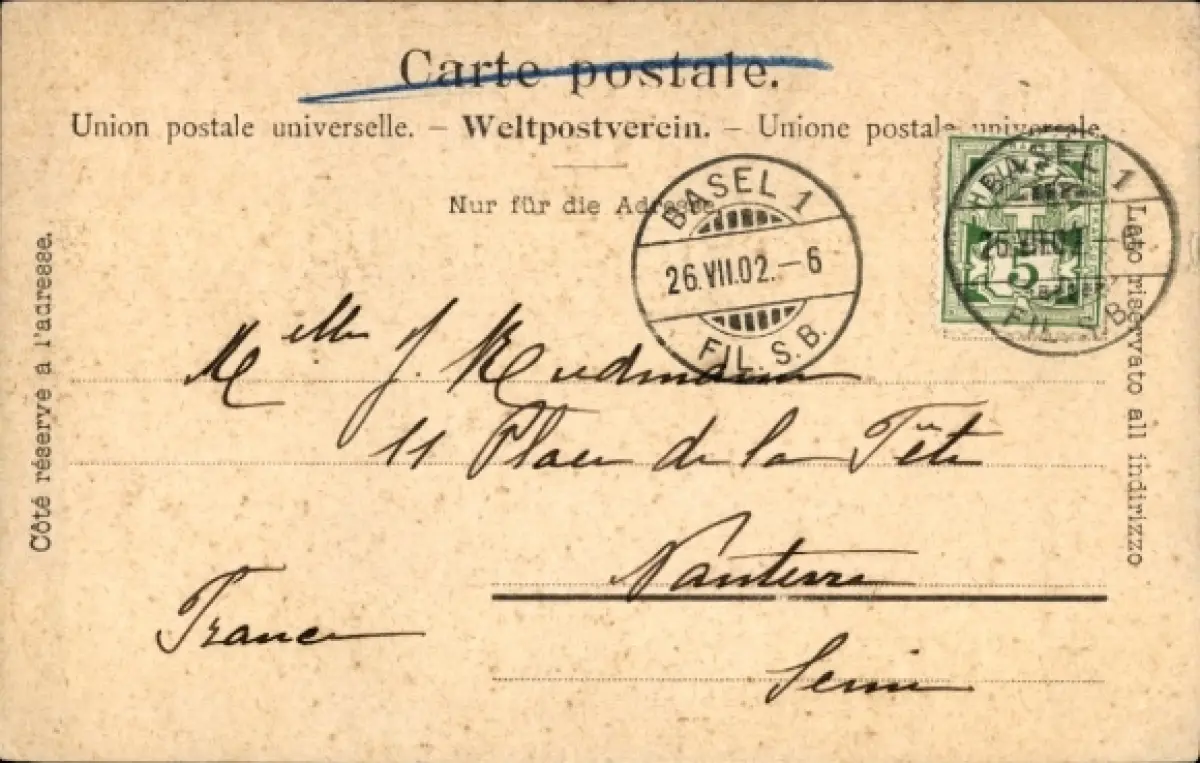 Carte postale.
Union postale universelle. – Weltpostverein. – Unione postale universale.
Nur für die Adresse
Côté réserve à l'adresse.
Lato riservato all indirizzo
BASEL 1
26.VII.02.–6
FIL. S.B.
HELVETIA
5
BASEL 1
26.VII.02.–6
FIL. S.B.
Melle J.
11 Place de la Fête
Nanterre
France
Seine